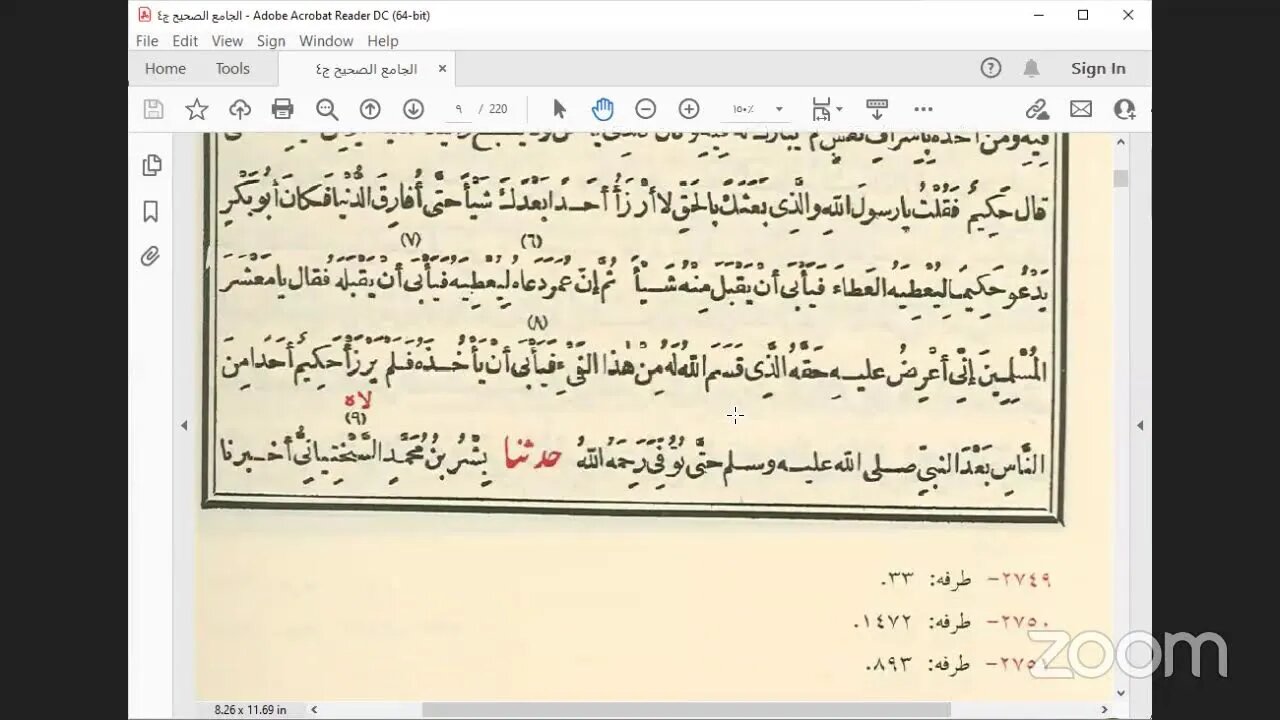 الجامع الصحيح ج٤ - Adobe Acrobat Reader DC (64-bit)
File Edit View Sign Window Help
Home Tools الجامع الصحيح ج٤ × Sign In
٩ / 220 ١٥٠٪
قال حَكِيمٌ فَقُلْتُ يارسولَ اللهِ والَّذِى بَعَثَكَ بِالحَقِّ لا أَرْزَأُ أَحَدًا بَعْدَكَ شَيْأً حتَّى أُفارِقَ الدُّنْيا فَكانَ أَبُو بَكْرٍ
(٦) (٧)
يَدْعُو حَكِيمًا لِيُعْطِيَهُ العَطاءَ فَيَأْبَى أَنْ يَقْبَلَ مِنْهُ شَيْأً ثُمَّ إنَّ عُمَرَ دَعاهُ لِيُعْطِيَهُ فَيَأْبَى أَنْ يَقْبَلَهُ فقال يا مَعْشَرَ
(٨)
المُسْلِمِينَ إنِّى أَعْرِضُ عليهِ حَقَّهُ الَّذِى قَسَمَ اللهُ لَهُ مِنْ هٰذا الفَىْءِ فَيَأْبَى أَنْ يَأْخُذَهُ فَلَمْ يَرْزَأْ حَكِيمٌ أَحَدًا مِنَ
لاه
(٩)
النَّاسِ بَعْدَ النبيِّ صلى الله عليه وسلم حتَّى تُوُفِّىَ رَحِمَهُ اللهُ حدثنا بِشْرُ بنُ مُحَمَّدٍ السَّخْتِيانِيُّ أخبرنا
٢٧٤٩- طرفه: ٣٣.
٢٧٥٠- طرفه: ١٤٧٢.
٢٧٥١- طرفه: ٨٩٣.
8.26 x 11.69 in
zoom